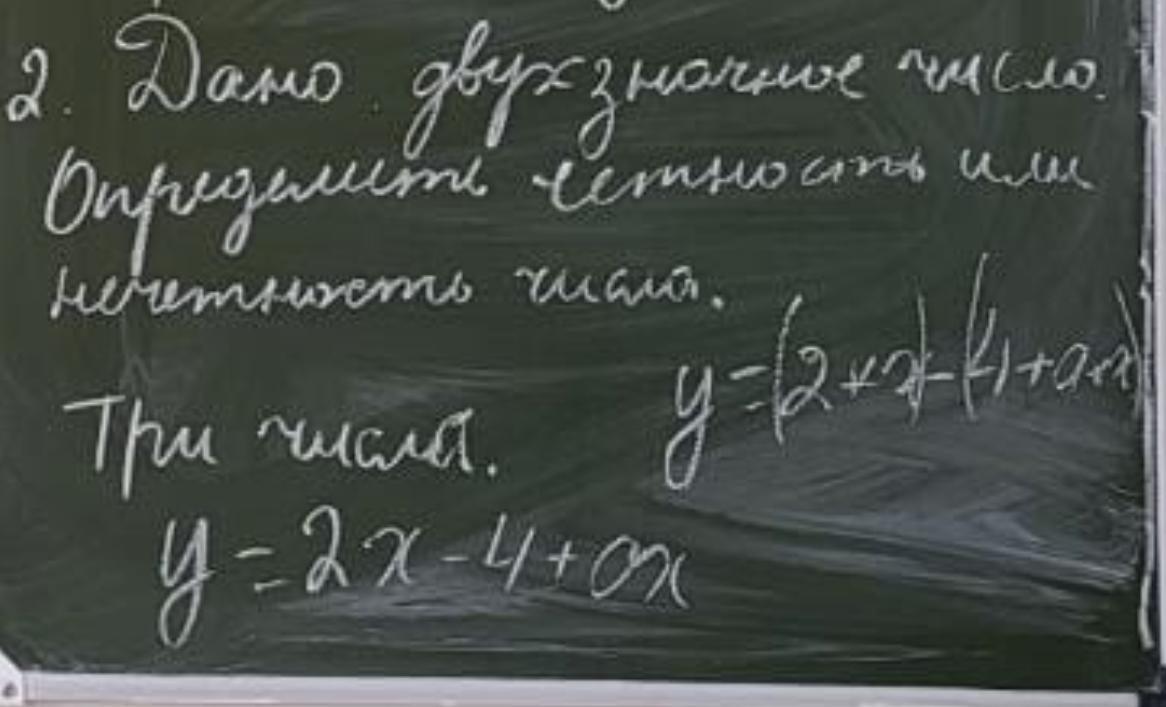 2. Дано двухзначное число.
Определить четность или
нечетность числа.
y=(2+x)-(4+a+x)
Три числа.
y=2x-4+ax